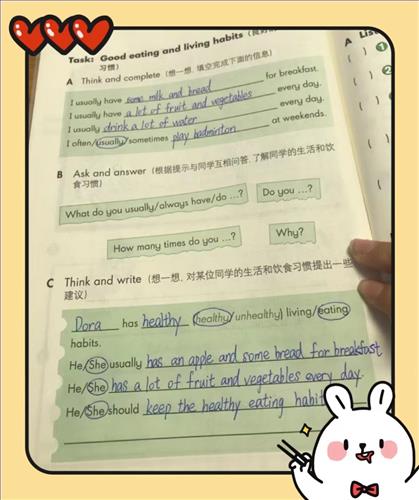 Task: Good eating and living habits (良好的
习惯)
A Think and complete (想一想, 填空完成下面的信息)
I usually have some milk and bread for breakfast.
I usually have a lot of fruit and vegetables every day.
I usually drink a lot of water every day.
I often/usually/sometimes play badminton at weekends.
B Ask and answer (根据提示与同学互相问答, 了解同学的生活和饮
食习惯)
What do you usually/always have/do ...?
Do you ...?
How many times do you ...?
Why?
C Think and write (想一想, 对某位同学的生活和饮食习惯提出一些
建议)
Dora has healthy (healthy/unhealthy) living/eating
habits.
He/She usually has an apple and some bread for breakfast
He/She has a lot of fruit and vegetables every day.
He/She should keep the healthy eating
A
( ) 1
( ) 2
( )
( )
(